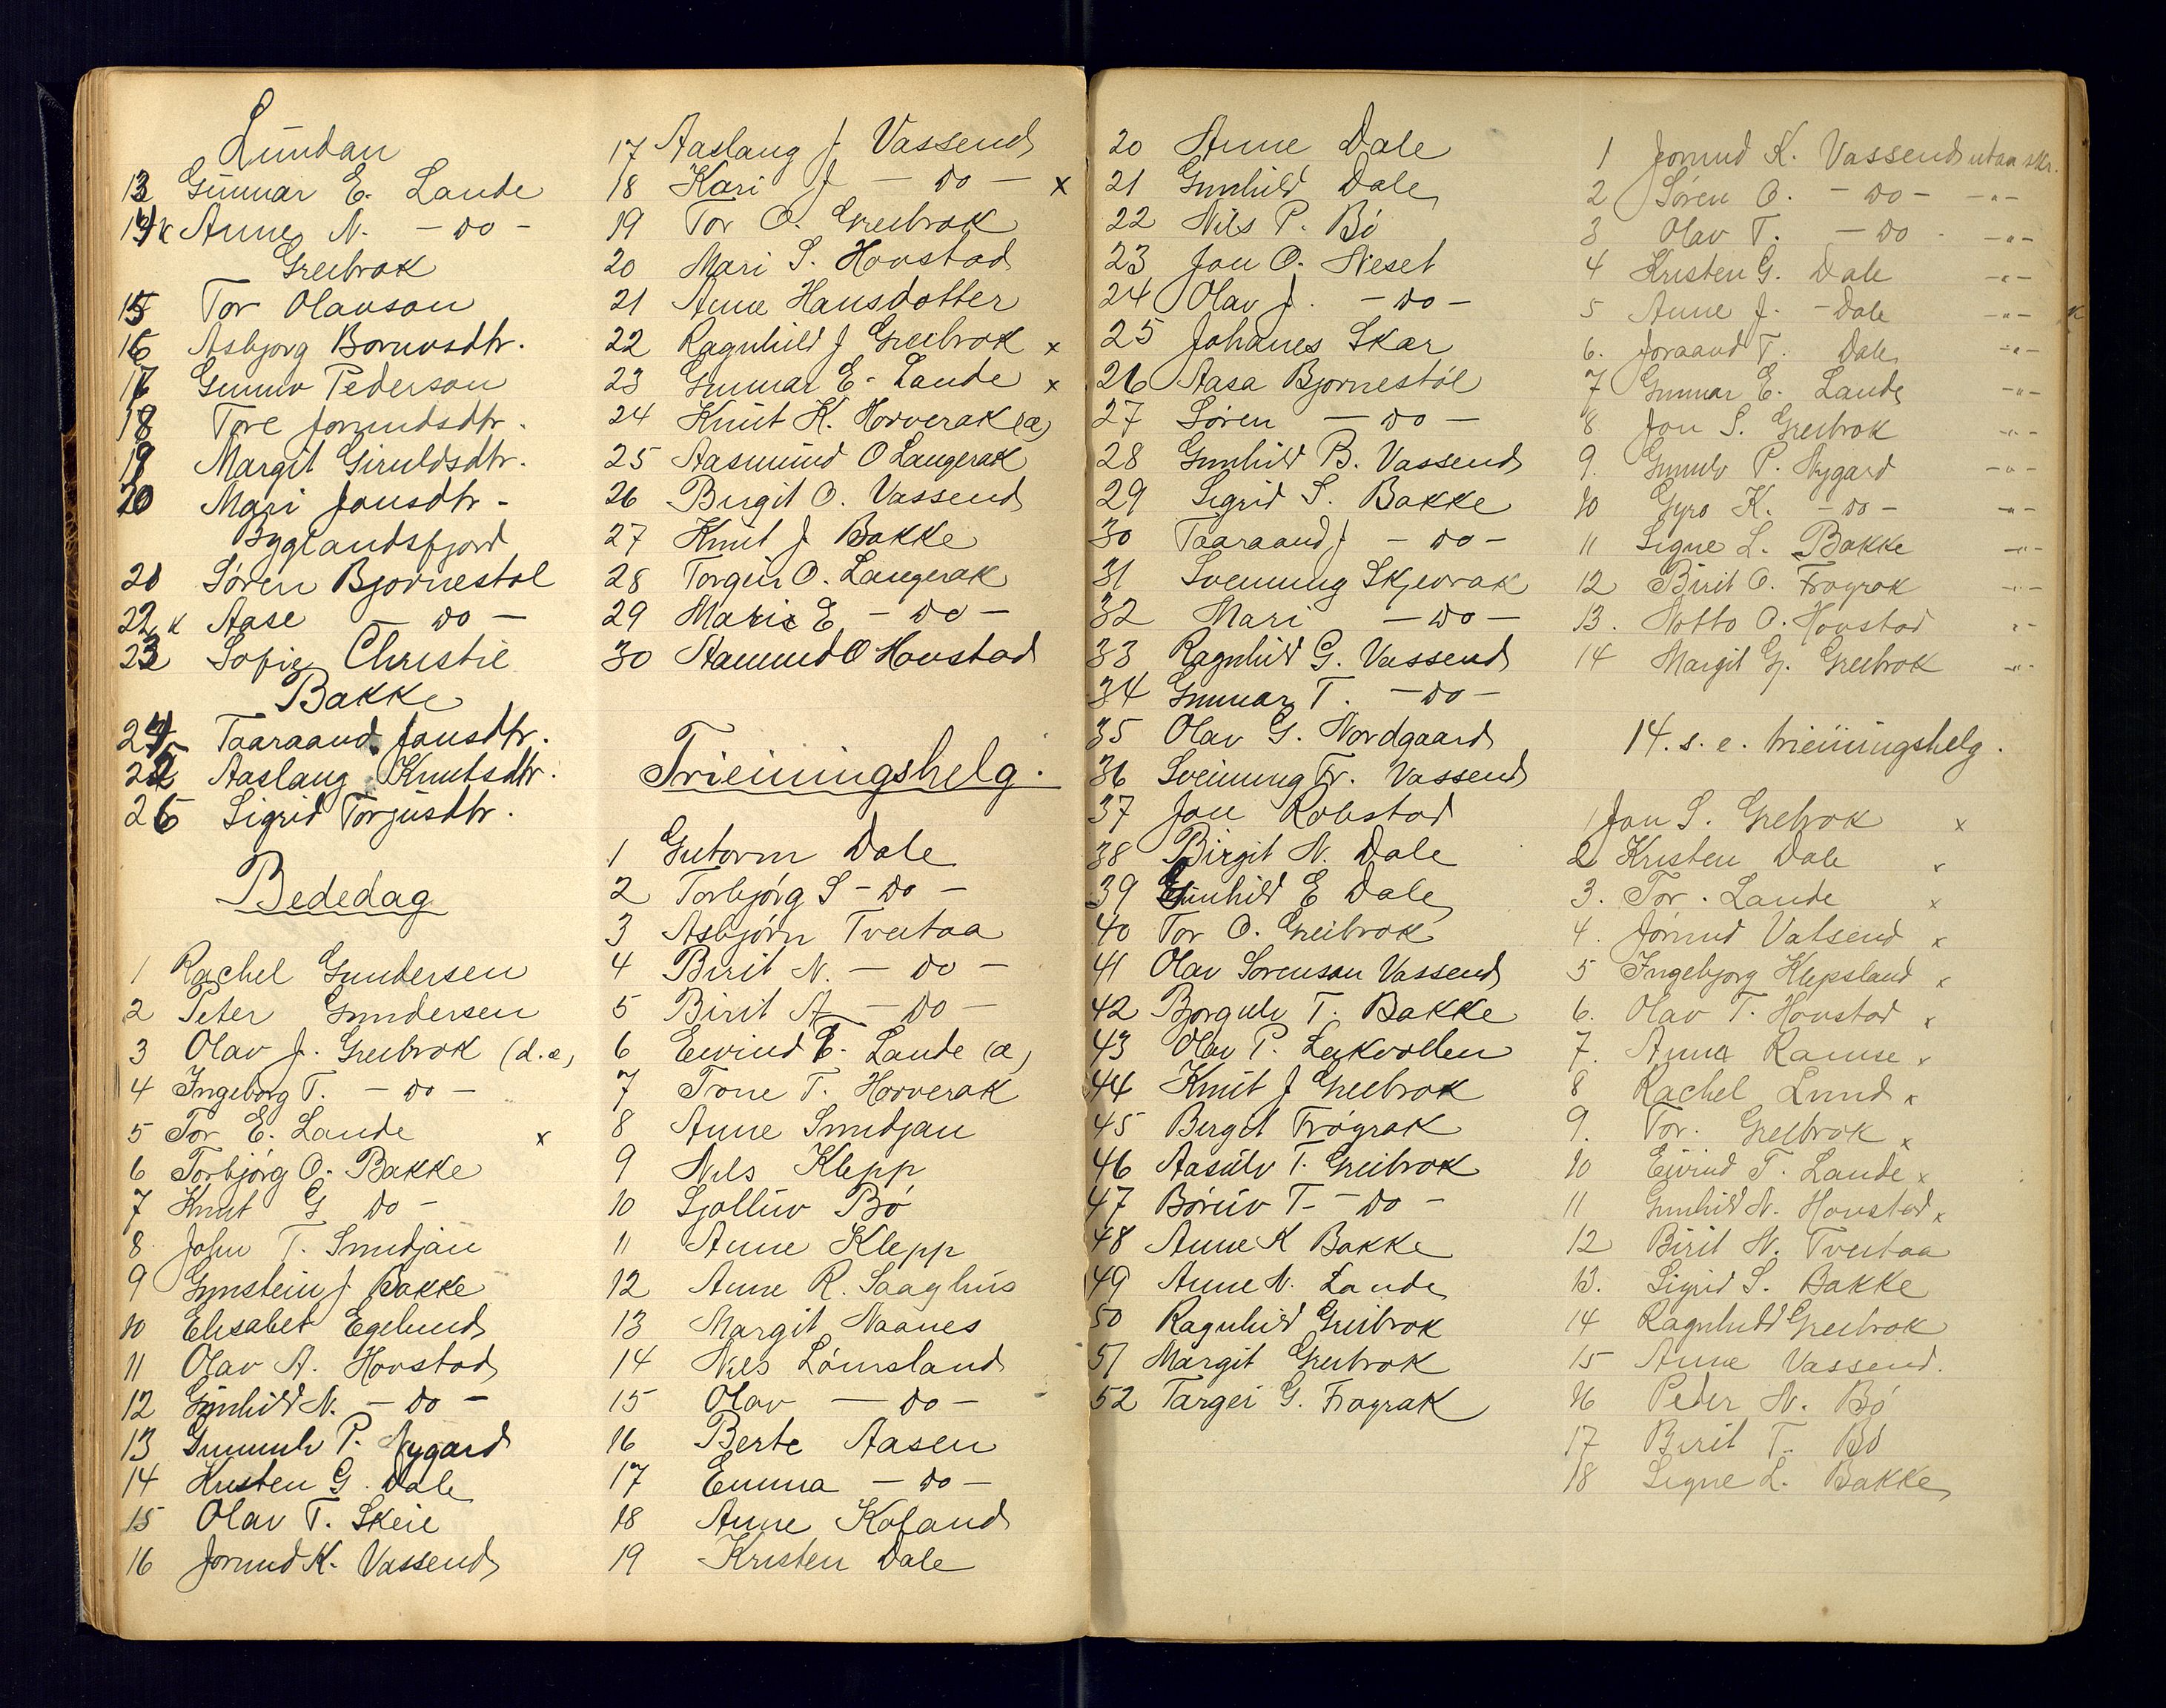 Lundan
13 Gunnar E. Lande
14 k Anne N. - do -
Greibrok
15 Tor Olavson
16 Asbjørg Bornvsdtr.
17 Gunnuv Pederson
18 Tore Jorundsdtr.
19 Margit Giruldsdtr.
20 Mari Jonsdtr -
Byglandsfjord
21 Søren Bjørnestøl
22 k Aase - do -
23 Sofie Christie
Bakke
24 Taaraand Jonsdtr.
25 Aaslaug Knutsdtr.
26 Sigrid Torjusdtr.
Bededag
1 Rachel Gundersen
2 Peter Gundersen
3 Olav J. Greibrok (d.e)
4 Ingeborg T. - do -
5 Tor E. Lande x
6 Torbjørg O. Bakke
7 Knut G do -
8 John T. Smidjan
9 Gunstein J Bakke
10 Elisabet Egelund
11 Olav A. Hovstad
12 Gunhild N. - do -
13 Gunnulv P. Nygard
14 Kristen G. Dale
15 Olav T. Skeie
16 Jorund K. Vassend
17 Aaslaug J Vassend
18 Kari J - do - x
19 Tor O. Greibrok
20 Mari S. Hovstad
21 Anne Hansdotter
22 Ragnhild J Greibrok x
23 Gunnar E. Lande x
24 Knut K. Horverak (a)
25 Aasmund O Langerak
26 Birgit O. Vassend
27 Knut J Bakke
28 Torgeir O. Langerak
29 Mari E - do -
30 Aamund O Hovstad
Trieiningshelg.
1 Gutorm Dale
2 Torbjørg S - do -
3 Asbjørn Tveitaa
4 Birit N. - do -
5 Birit A - do -
6 Eivind E. Lande (a)
7 Trone T. Horverak
8 Anne Smidjan
9 Nils Klepp
10 Ljolluv Bø
11 Anne Klepp
12 Anne R. Saaghus
13 Margit Naanes
14 Nils Lømsland
15 Olav - do -
16 Berte Aasen
17 Emma - do -
18 Anne Kaland
19 Kristen Dale
20 Anne Dale
21 Gunhild Dale
22 Nils P. Bø
23 Jon O. Neset
24 Olav J. - do -
25 Johanes Skar
26 Aasa Bjørnestøl
27 Søren - do -
28 Gunhild B. Vassend
29 Sigrid S. Bakke
30 Taaraand J - do -
31 Sveinung Skjevrak
32 Mari - do -
33 Ragnhild G. Vassend
34 Gunnar T. - do -
35 Olav G. Nordgaard
36 Sveinung Tr. Vassend
37 Jon Robstad
38 Birgit N. Dale
39 Gunhild E Dale
40 Tor O. Greibrok
41 Olav Sørenson Vassend
42 Bjørgulv T. Bakke
43 Olav P. Leikvollen
44 Knut J Greibrok
45 Birgit Frøyrak
46 Aasulv T. Greibrok
47 Børuv T - do -
48 Anne K Bakke
49 Anne N. Lande
50 Ragnhild Greibrok
51 Margit Greibrok
52 Targei G. Frøyrak
1 Jorund K. Vassend utan skr.
2 Søren O. - do - -"-
3 Olav T. - do - -"-
4 Kristen G. Dale -"-
5 Anne J. - Dale -"- x
6. Joraand T. Dale -"-
7 Gunnar E. Lande -"-
8 Jon S. Greibrok -"-
9. Gunnulv P. Nygard -"-
10 Gyro K. - do - -"-
11 Signe L. Bakke -"-
12 Birit O. Frøyrak -"-
13. Notto O. Hovstad -"-
14 Margit Gj. Greibrok -"-
14. s. e. trieiningshelg.
1 Jon S. Greibrok x
2 Kristen Dale x
3. Tor. Lande x
4. Jørund Vatsend x
5 Ingebjørg Klepsland x
6. Olav T. Hovstad x
7. Anna Ramse x
8 Rachel Lund x
9. Tor. Greibrok x
10 Eivind T. Lande x
11 Gunhild N. Hovstad x
12 Birit N. Tveitaa
13. Sigrid S. Bakke
14 Ragnhild Greibrok
15 Anne Vassend.
16 Peder N. Bø
17 Birit T. Bø
18 Signe L. Bakke